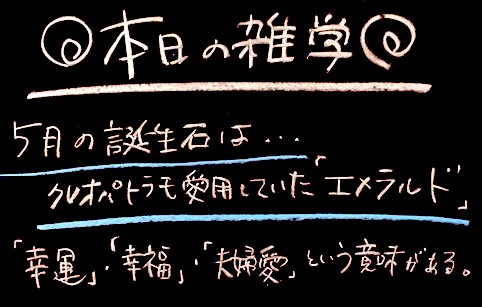 本日の雑学
5月の誕生石は…
クレオパトラも愛用していた「エメラルド」
「幸運」・「幸福」・「夫婦愛」という意味がある。